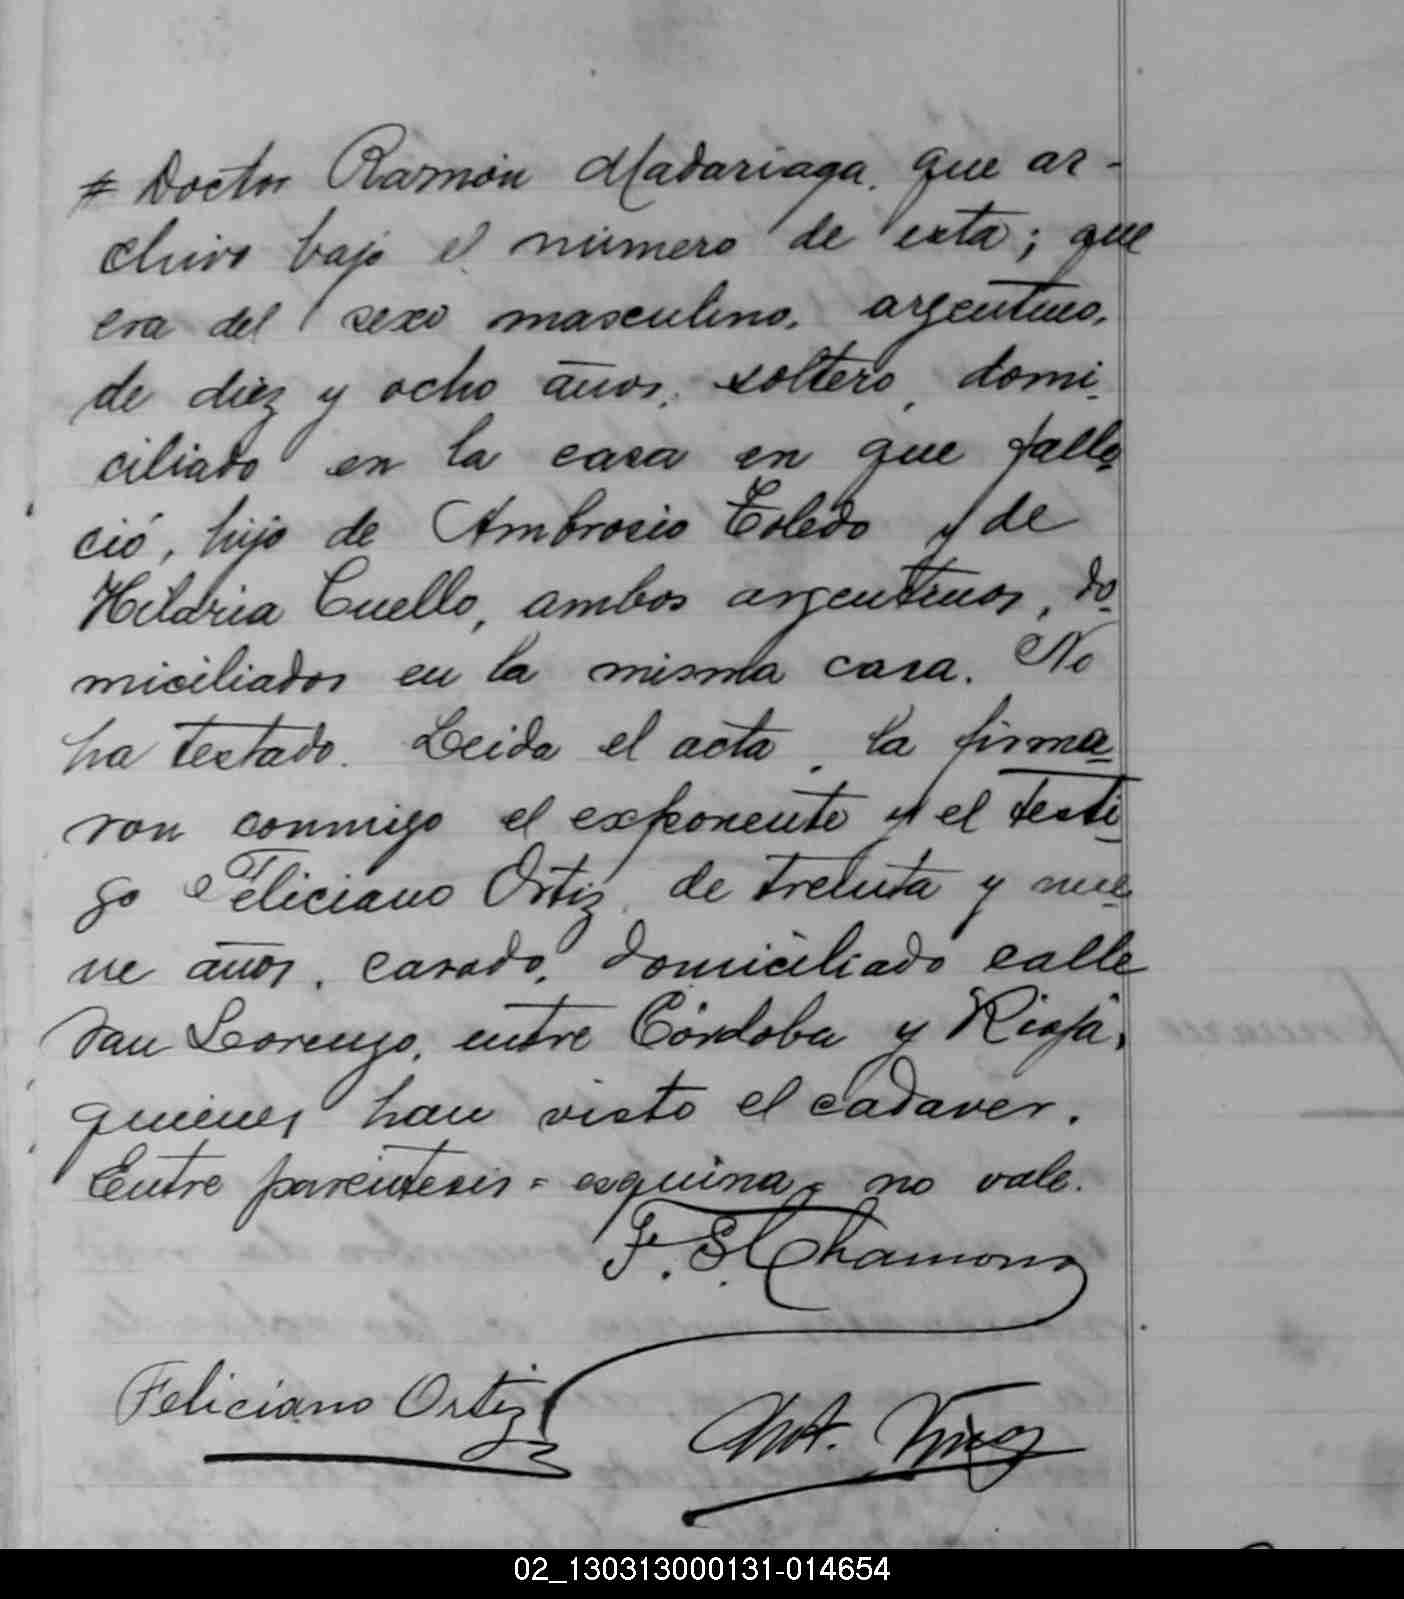 # Doctor Ramón Madariaga, que ar-
chivo bajo el número de esta; que
era del sexo masculino, argentino,
de diez y ocho años, soltero, domi-
ciliado en la casa en que falle-
ció, hijo de Ambrosio Toledo y de
Hilaria Cuello, ambos argentinos, do-
miciliados en la misma casa. No
ha testado. Leida el acta, la firma-
ron conmigo el exponente y el testi-
go Feliciano Ortiz, de treinta y nue-
ve años, casado, domiciliado calle
San Lorenzo, entre Córdoba y Rioja,
quienes han visto el cadaver.
Entre paréntesis = esquina = no vale.
F. S. Chamorro
Feliciano Ortiz
Ant.
02_130313000131-014654